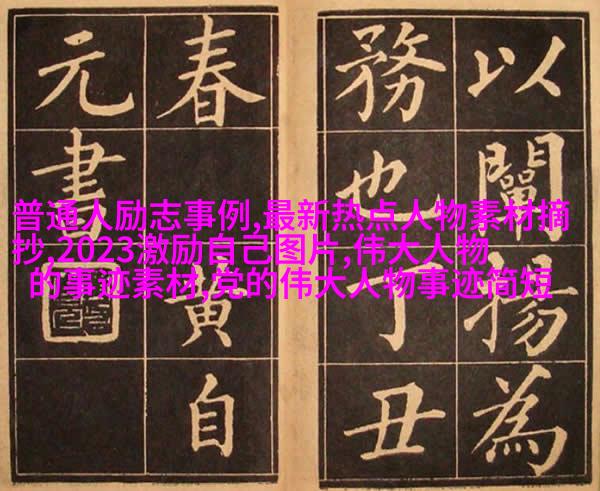 以闡揚為
務也丁丑
春黃自
元書
普通人励志事例,最新热点人物素材摘
抄,2023激励自己图片,伟大人物
的事迹素材,党的伟大人物事迹简短